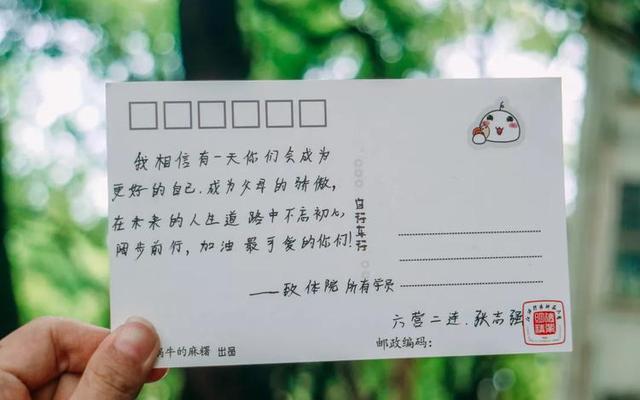 我相信有一天你们会成为
更好的自己.成为父母的骄傲,
在未来的人生道路中不忘初心,
阔步前行,加油 最可爱的你们!
——致体院所有学员
六营二连.张志强
邮政编码:
蜗牛的麻糬 出品